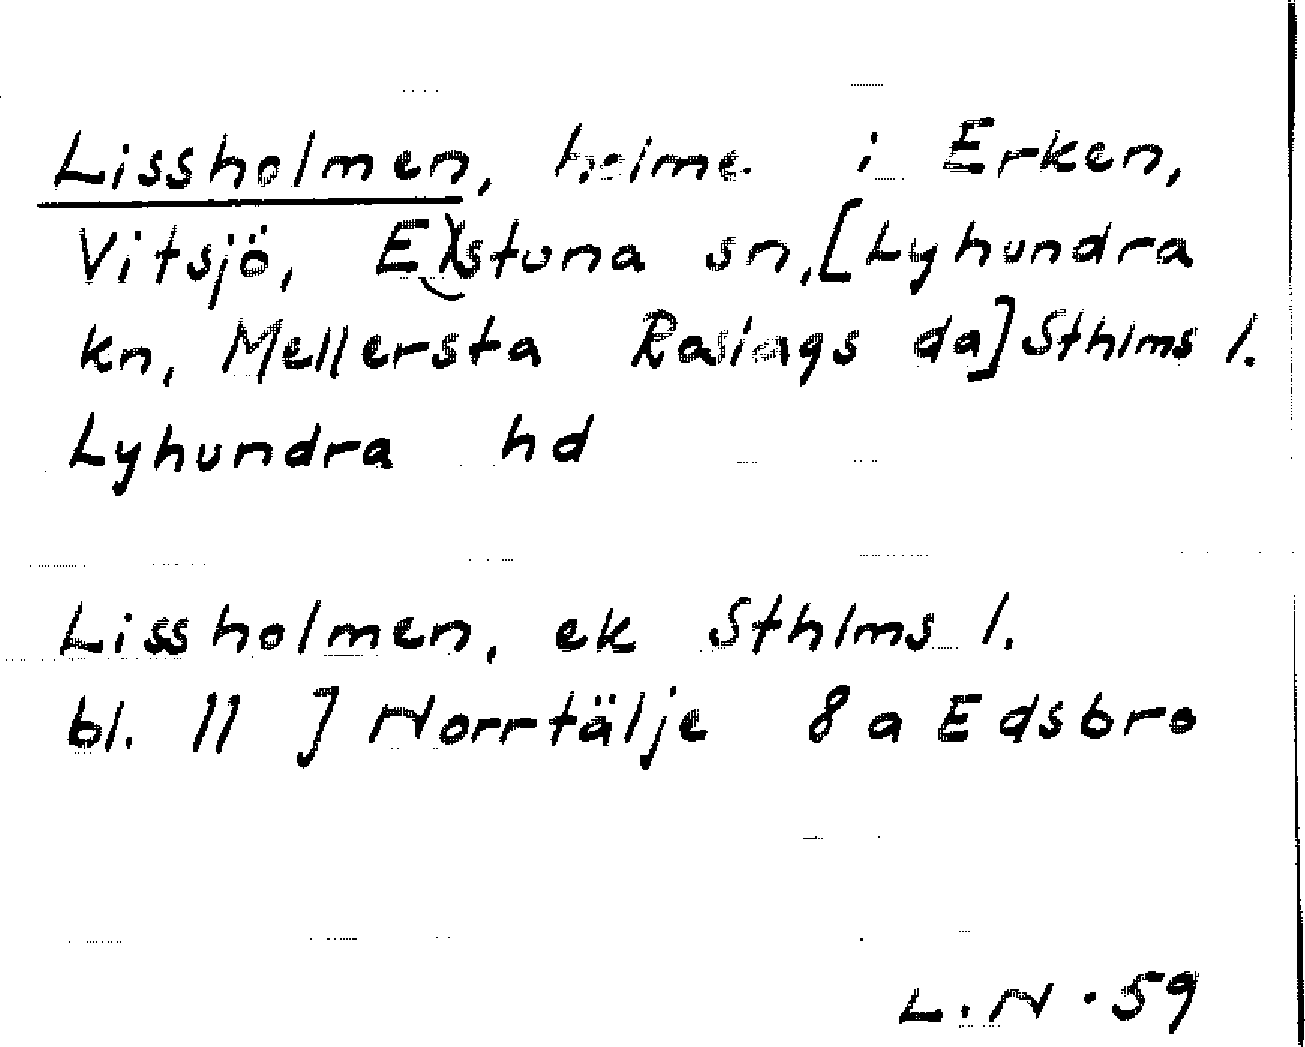 Lissholmen, holme i Erken,
Vitsjö, Estuna sn, [Lyhundra
kn, Mellersta Roslags da] Sthlms l.
Lyhundra hd
Lissholmen, ek Sthlms l.
bl. 11 J Norrtälje 8a Edsbro
L.N. 59